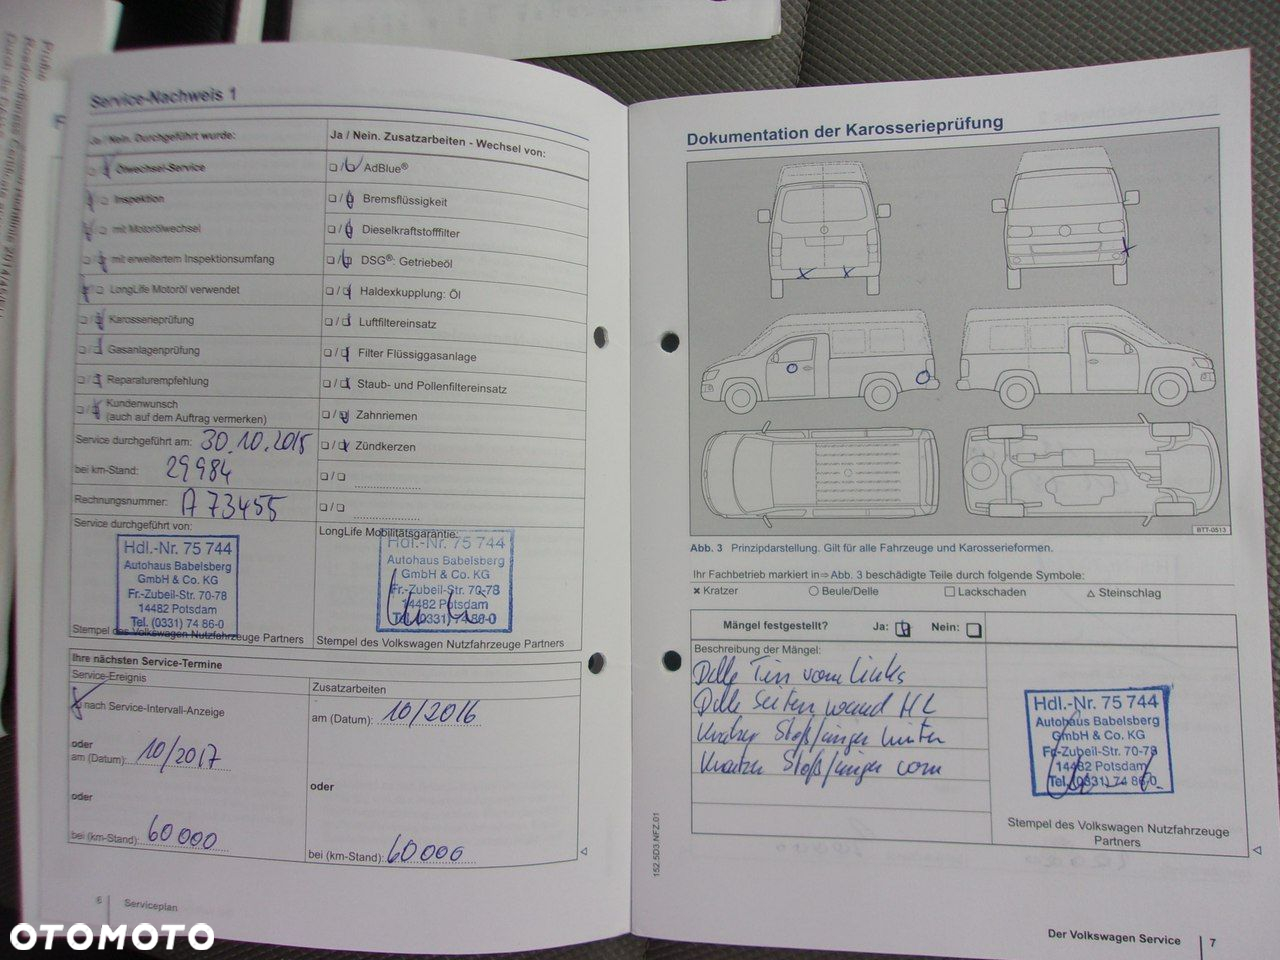 Service-Nachweis 1
Ja / Nein. Durchgeführt wurde:
Ölwechsel-Service
Inspektion
mit Motorölwechsel
mit erweitertem Inspektionsumfang
LongLife Motoröl verwendet
Karosserieprüfung
Gasanlagenprüfung
Reparaturempfehlung
Kundenwunsch
(auch auf dem Auftrag vermerken)
Service durchgeführt am: 30.10.2015
bei km-Stand: 29984
Rechnungsnummer: A 73455
Service durchgeführt von:
Hdl.-Nr. 75 744
Autohaus Babelsberg
GmbH & Co. KG
Fr.-Zubeil-Str. 70-78
14482 Potsdam
Tel. (0331) 74 86-0
Stempel des Volkswagen Nutzfahrzeuge Partners
Ja / Nein. Zusatzarbeiten - Wechsel von:
AdBlue®
Bremsflüssigkeit
Dieselkraftstofffilter
DSG®: Getriebeöl
Haldexkupplung: Öl
Luftfiltereinsatz
Filter Flüssiggasanlage
Staub- und Pollenfiltereinsatz
Zahnriemen
Zündkerzen
LongLife Mobilitätsgarantie:
Hdl.-Nr. 75 744
Autohaus Babelsberg
GmbH & Co. KG
Fr.-Zubeil-Str. 70-78
14482 Potsdam
Tel. (0331) 74 86-0
Stempel des Volkswagen Nutzfahrzeuge Partners
Ihre nächsten Service-Termine
Service-Ereignis
nach Service-Intervall-Anzeige
oder
am (Datum): 10/2017
oder
bei (km-Stand): 60 000
Zusatzarbeiten
am (Datum): 10/2016
oder
bei (km-Stand): 60 000
6 Serviceplan
Dokumentation der Karosserieprüfung
BTT-0513
Abb. 3 Prinzipdarstellung. Gilt für alle Fahrzeuge und Karosserieformen.
Ihr Fachbetrieb markiert in ⇒ Abb. 3 beschädigte Teile durch folgende Symbole:
× Kratzer ○ Beule/Delle □ Lackschaden △ Steinschlag
Mängel festgestellt? Ja: Nein:
Beschreibung der Mängel:
Delle Tür vorn links
Delle Seitenwand HL
Kratzer Stoßfänger hinten
Kratzer Stoßfänger vorn
Hdl.-Nr. 75 744
Autohaus Babelsberg
GmbH & Co. KG
Fr.-Zubeil-Str. 70-78
14482 Potsdam
Tel. (0331) 74 86-0
Stempel des Volkswagen Nutzfahrzeuge
Partners
152.5D3.NFZ.01
Der Volkswagen Service 7
OTOMOTO